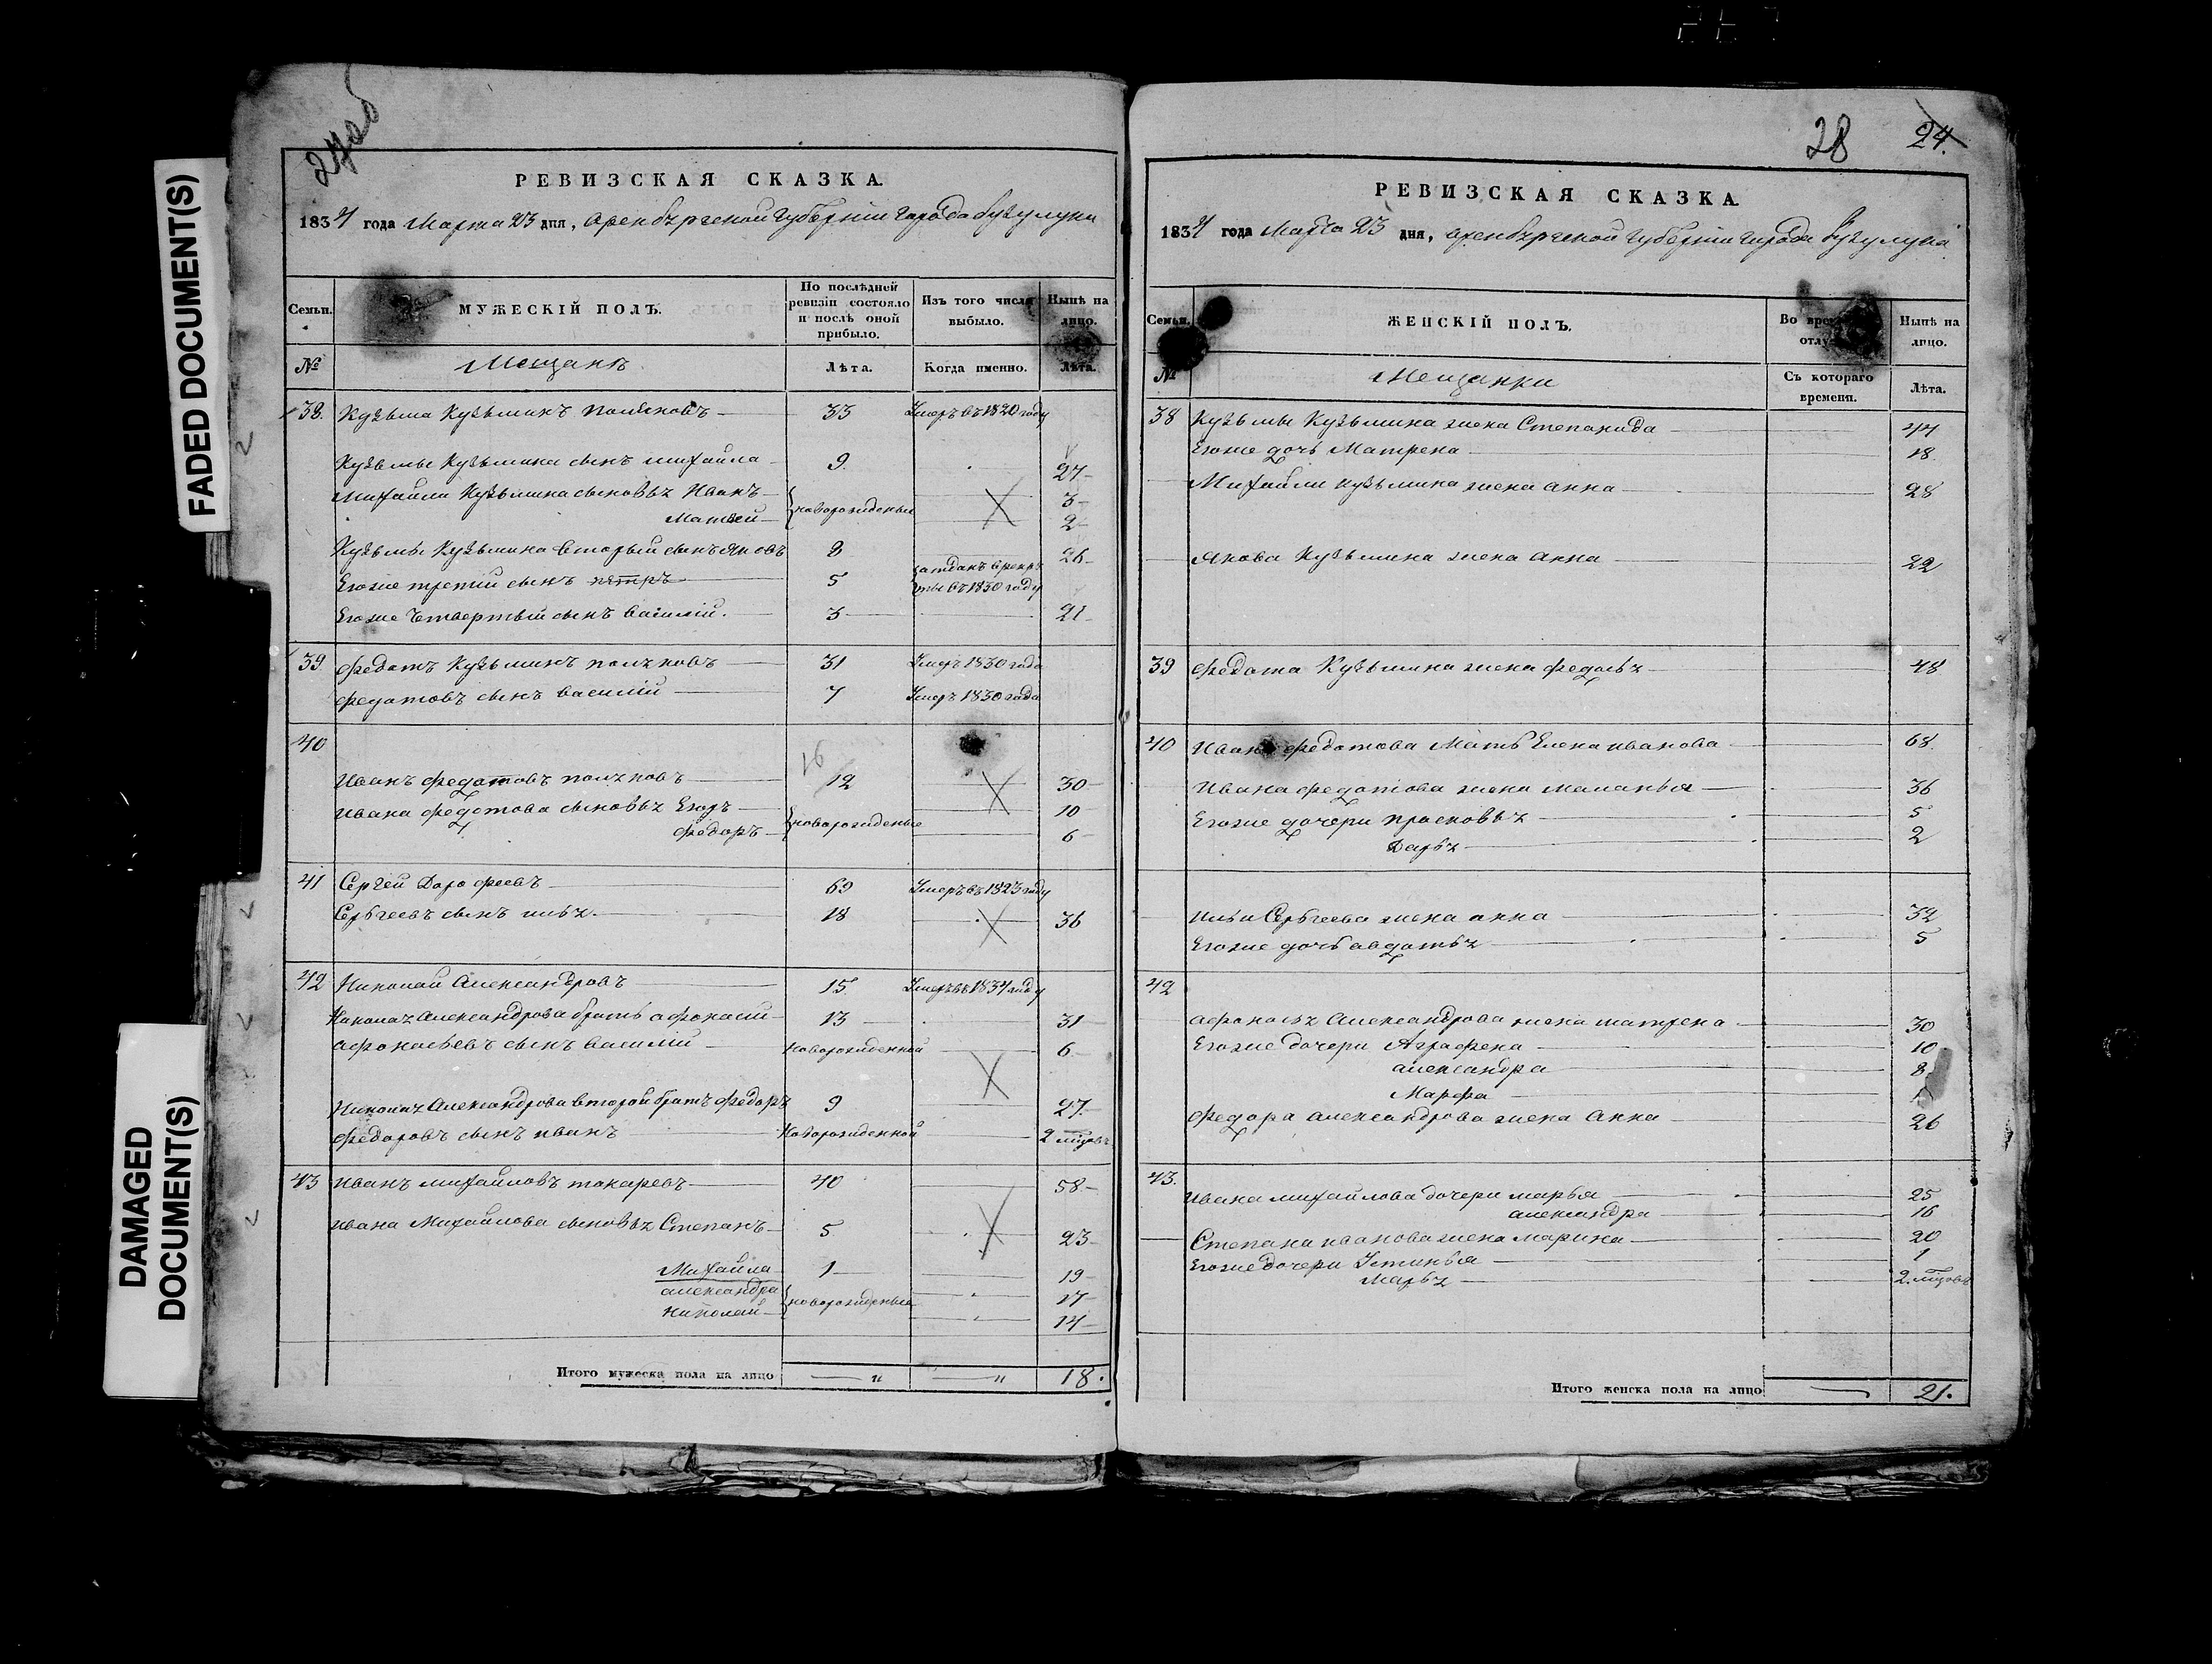 FADED DOCUMENT(S)
DAMAGED
DOCUMENT(S)
27об
РЕВИЗСКАЯ СКАЗКА.
1834 года Марта 23 дня, Оренбургской губернии города Бузулука
Семьи. МУЖЕСКІЙ ПОЛЪ. По послѣдней ревизіи состояло и послѣ оной прибыло. Изъ того числа выбыло. Нынѣ на лицо.
№ Мещанъ Лѣта. Когда именно. Лѣта.
38. Кузьма Кузьминъ 33 Умеръ въ 1820 году
Кузьмы Кузьмина сынъ михайла 9. 27
Михайли Кузьмина сыновья Иванъ 3
Матвей новорожденые 2
Кузьмы Кузьмина вторый сынъ Яковъ 8 26
Егоже третій сынъ петръ 5 отданъ в рекруты въ 1830 году
Егоже Четвертый сынъ василій. 3 21
39. Федотъ Кузьминъ 31 Умеръ 1830 года
Федотовъ сынъ василій 7 Умеръ 1830 года
40
16
Иванъ Федотовъ 12 30
Ивана Федотова сыновья Егоръ 10
Федоръ новорожденые 6
41 Сергей Дорофеевъ 69 Умеръ въ 1823 году
Сергеевъ сынъ илья. 18 36
42 Николай Александровъ 15 Умеръ въ 1834 году
Николая Александрова братъ афонасий 13 31
афонасьевъ сынъ василій Новорожденной 6
Николая Александрова второй братъ Федоръ 9 27
Федоровъ сынъ иванъ Новорожденной 2 мѣсяц
43 Иванъ михайловъ токаревъ 40 58
ивана Михайлова сыновья Степанъ 5 23
Михайла 1 19
александра 17
Николай новорожденые 14
Итого мужеска пола на лицо 18.
28 24.
РЕВИЗСКАЯ СКАЗКА.
1834 года Марта 23 дня, Оренбургской губернии города Бузулука
Семьи. ЖЕНСКІЙ ПОЛЪ. Во вре отлу Нынѣ на лицо.
№ Мещанки Съ котораго времени. Лѣта.
38 Кузьмы Кузьмина жена Степанида 44
Егоже дочь Матрена 18
Михайли кузьмина жена анна 28
Якова Кузьмина жена анна 22
39 Федота Кузьмина жена федосья 48
40 Ивана Федотова Мать Елена иванова 68.
Ивана федотова жена маланья 36
Егоже дочери прасковья 5
Дарья 2
Ильи Сергеева жена анна 32
Егоже дочь авдотья 5
42
афонасья Александрова жена матрена 30
Егоже дочери Аграфена 10
александра 8
Марфа
Федора александрова жена Анна 26
43.
Ивана михайлова дочери марья 25
александра 16
Степана иванова жена марина 20
Егоже дочери Устинья 1
марья 2. мѣсяц
Итого женска пола на лицо 21.